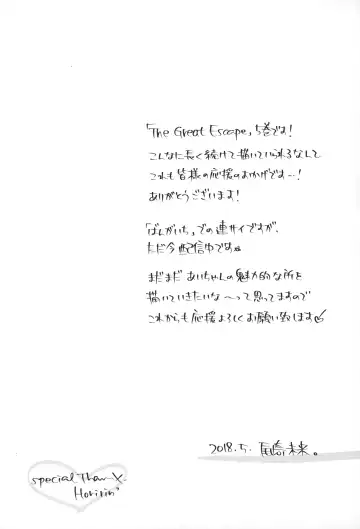 「The Great Escape」5巻です！
こんなに長く続けて描いていられるなんて
これも皆様の応援のおかげです…！
ありがとうございます！
「ばんがいち」での連サイですが、
ただ今配信中です
まだまだ あいちゃんの魅力的な所を
描いていきたいな〜って思ってますので
これからも応援よろしくお願い致します
2018.5. 尾崎未来。
special Thanx
Horirin'